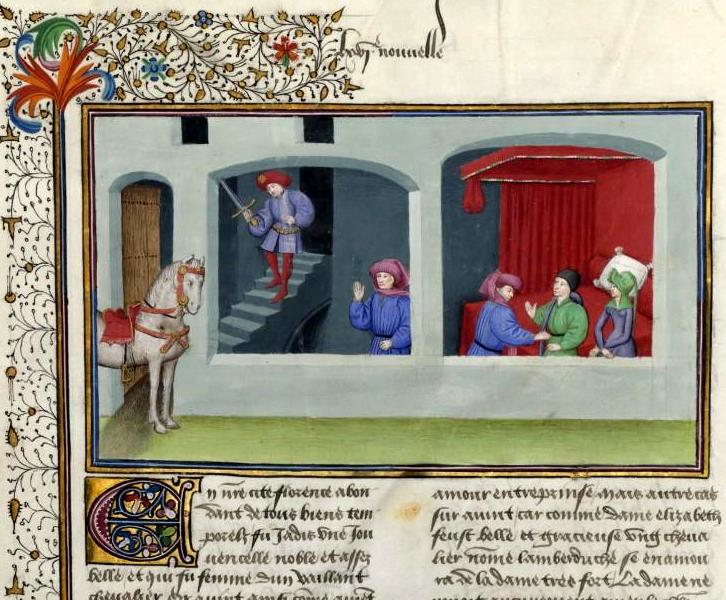 lxvi nouuelle
En n̄re cite florence abon
dant de tous biens tem
porelz fu Jadis vne Jou
uencelle noble et assez
belle et qui fu femme dun vaillant
cheualier
amour entreprinse mais autre cas
suruint car comme dame elizabeth
feust belle et gracieuse vng cheua
lier nōme lamberduche se enamou
ra de la dame tres fort La dame ne